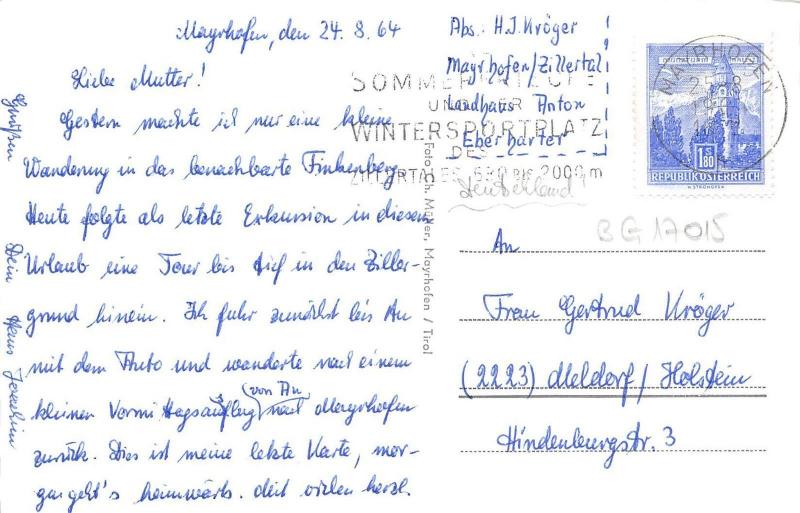 Mayrhofen, den 24. 8. 64
Liebe Mutter!
Gestern machte ich nur eine kleine
Wanderung in das benachbarte Finkenberg.
Heute folgte als letzte Exkursion in diesem
Urlaub eine Tour bis tief in den Ziller-
grund hinein. Ich fuhr zunächst bis Au
mit dem Auto und wanderte nach einem
kleinen Vormittagsausflug (von Au) nach Mayrhofen
zurück. Dies ist meine letzte Karte, mor-
gen geht's heimwärts. Mit vielen herzl.
Grüßen
Dein Hans Joachim
Foto Ch. Müller, Mayrhofen / Tirol
Abs. H.J. Kröger
Mayrhofen/Zillertal
Landhaus Anton
Eberharter
Deutschland!
SOMMERFRISCHE
UND
WINTERSPORTPLATZ
DES
ZILLERTALES 630 BIS 2000 m
MAYRHOFEN
REPUBLIK ÖSTERREICH
S 1.80
BG 17015
An
Frau Gertrud Kröger
(2223) Meldorf / Holstein
Hindenburgstr. 3